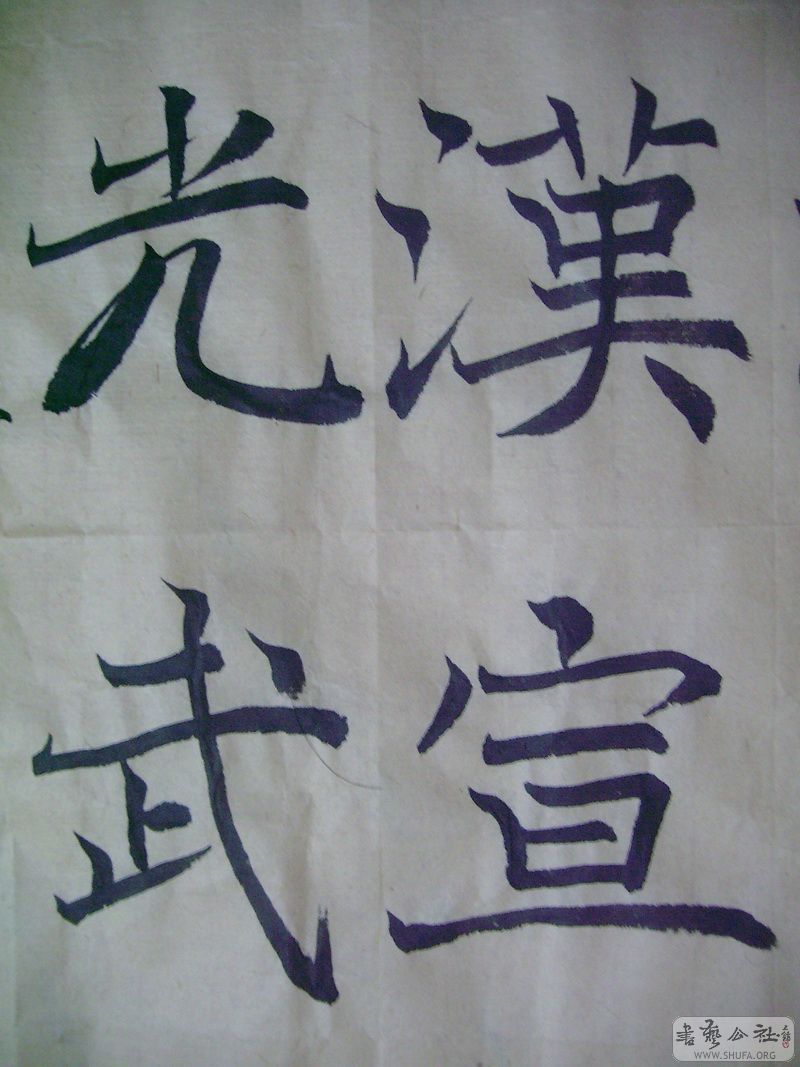 漢宣
光武
書藝公社
WWW.SHUFA.ORG